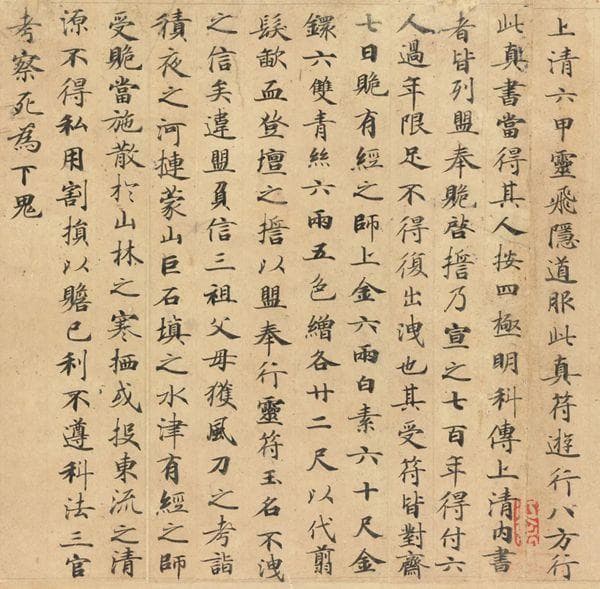 上清六甲靈飛隱道服此真符遊行八方行
此真書當得其人按四極明科傳上清內書
者皆列盟奉賝啓擔乃宣之七百年得付六
人過年限足不得復出洩也其受符皆對齋
七日賝有經之師上金六兩白素六十尺金
鐶六雙青絲六兩五色繒各廿二尺以代翦
髮歃血登壇之擔以盟奉行靈符玉名不洩
之信矣違盟負信三祖父母獲風刀之考詣
積夜之河摙蒙山巨石填之水津有經之師
受賝當施散於山林之寒栖或投東流之清
源不得私用割損以贍己利不遵科法三官
考察死為下鬼